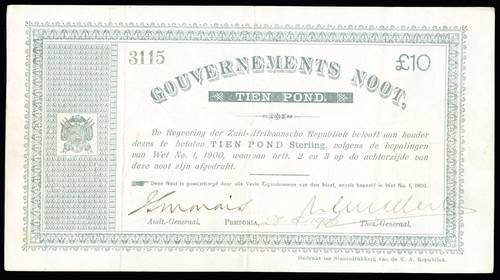 3115
£10
GOUVERNEMENTS NOOT,
TIEN POND.
De Regeering der Zuid-Afrikaansche Republiek belooft aan houder
dezes te betalen TIEN POND Sterling, volgens de bepalingen
van Wet No. 1, 1900, waarvan artt. 2 en 3 op de achterzijde van
deze noot zijn afgedrukt.
Deze Noot is gewaarborgd door alle Vaste Eigendommen van den Staat, zooals bepaald in Wet No. 1, 1900.
Audt.-Generaal. Pretoria, Thes.-Generaal.
Gedrukt ter Staatsdrukkerij van de Z. A. Republiek.